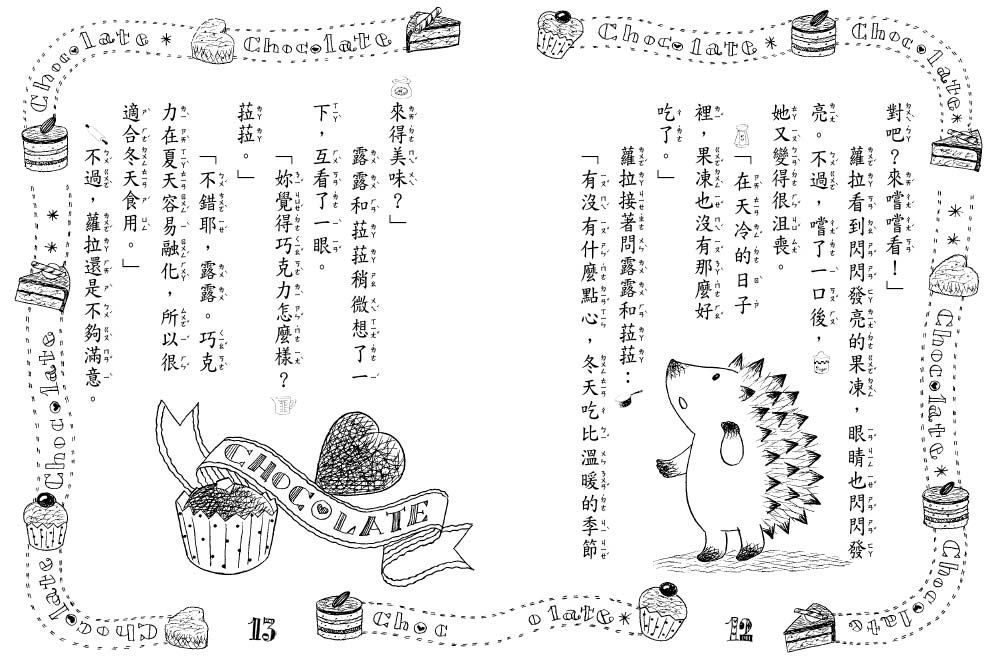 對吧？來嚐嚐看！」
蘿拉看到閃閃發亮的果凍，眼睛也閃閃發
亮。不過，嚐了一口後，
她又變得很沮喪。
「在天冷的日子
裡，果凍也沒有那麼好
吃了。」
蘿拉接著問露露和菈菈：
「有沒有什麼點心，冬天吃比溫暖的季節
12
來得美味？」
露露和菈菈稍微想了一
下，互看了一眼。
「妳覺得巧克力怎麼樣？
菈菈。」
「不錯耶，露露。巧克
力在夏天容易融化，所以很
適合冬天食用。」
不過，蘿拉還是不夠滿意。
CHOCOLATE
13
Chocolate
Chocolate
Chocolate
Chocolate
Chocolate
Chocolate
Chocolate
Chocolate
Chocolate
Chocolate
Chocolate